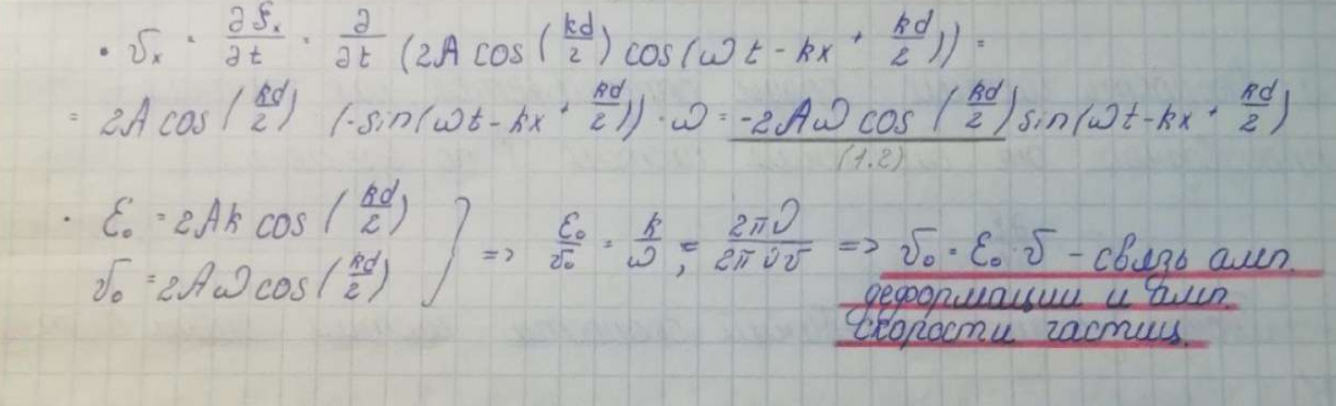 • υₓ = ∂ξₓ/∂t = ∂/∂t (2A cos(kd/2) cos(ωt - kx + kd/2)) =
= 2A cos(kd/2) (-sin(ωt - kx + kd/2)) · ω = -2Aω cos(kd/2) sin(ωt - kx + kd/2)
(1.2)
· ε₀ = 2Ak cos(kd/2)
υ₀ = 2Aω cos(kd/2) } => ε₀/υ₀ = k/ω = 2πν/2πνυ => υ₀ = ε₀ · υ - связь амп.
деформации и амп.
скорости частиц.